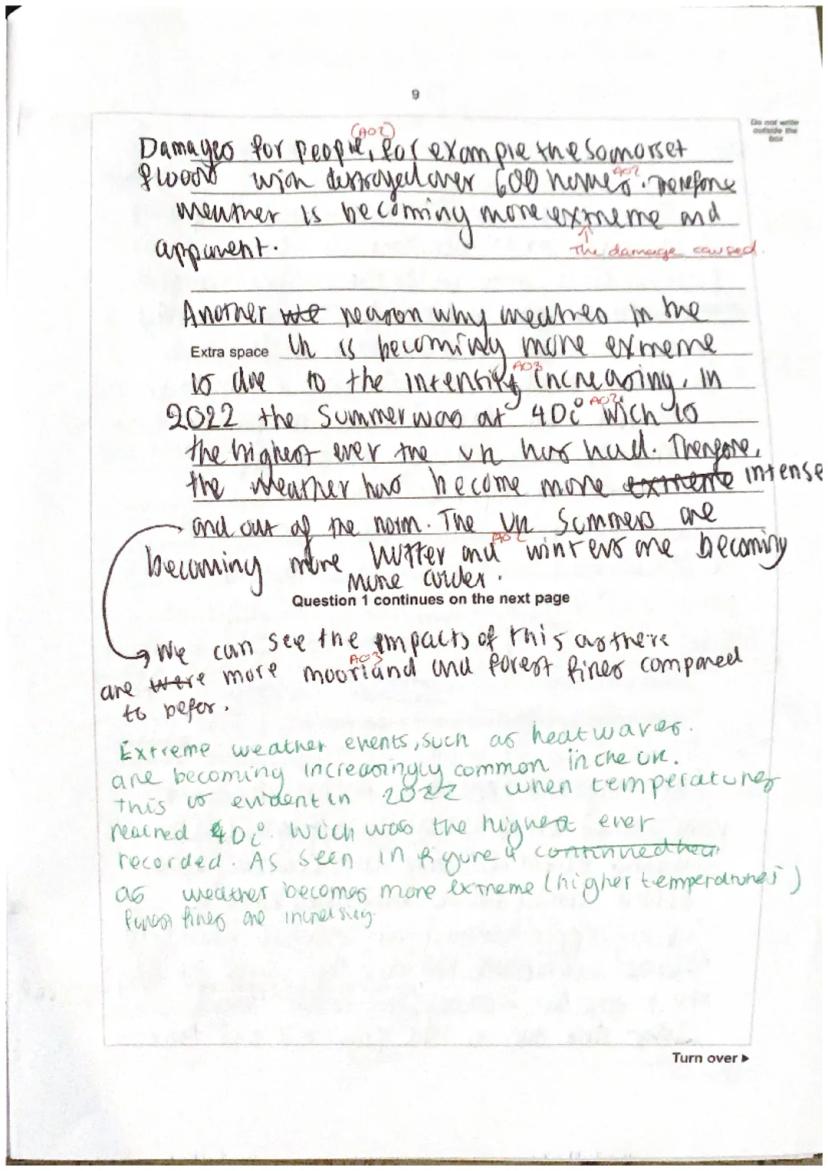 9
Do not write
outside the
box
(AO2)
Damages for people, for example the Somorset
floods wich destroyed over 600 homes. Therefore
AO2
weather is becoming more extreme and
apparent.
↑
The damage caused.
Another we reason why weather in the
Extra space Uk is becoming more extreme
is due to the intensity increasing. In
AO3
2022 the summer was at 40c° wich is
AO2
the highest ever the uk has had. Therefore,
the weather has become more extreme intense
and out of the norm. The uk summers are
becoming more hotter and winters are becoming
AO2
more colder.
Question 1 continues on the next page
We can see the impacts of this as there
are were more moorland and forest fires compared
AO3
to befor.
Extreme weather events, such as heatwaves.
are becoming increasingly common in the uk.
this is evident in 2022 when temperatures
reached 40c°. wich was the highest ever
recorded. As seen in figure 4
as weather becomes more extreme (higher temperatures)
forest fires are increasing.
Turn over ►